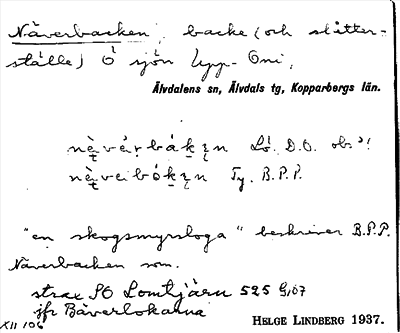 Näverbacken, backe (och slåtter-
ställe) Ö sjön Upp-Oni,
Älvdalens sn, Älvdals tg, Kopparbergs län.
Lö. D.O. obs!
Ty. B.P.P.
"en skogsmyrsloga" beskriver B.P.P.
Näverbacken som.
strax SO Lomtjärn 525
jfr Bäverlokarna
XII 106
HELGE LINDBERG 1937.